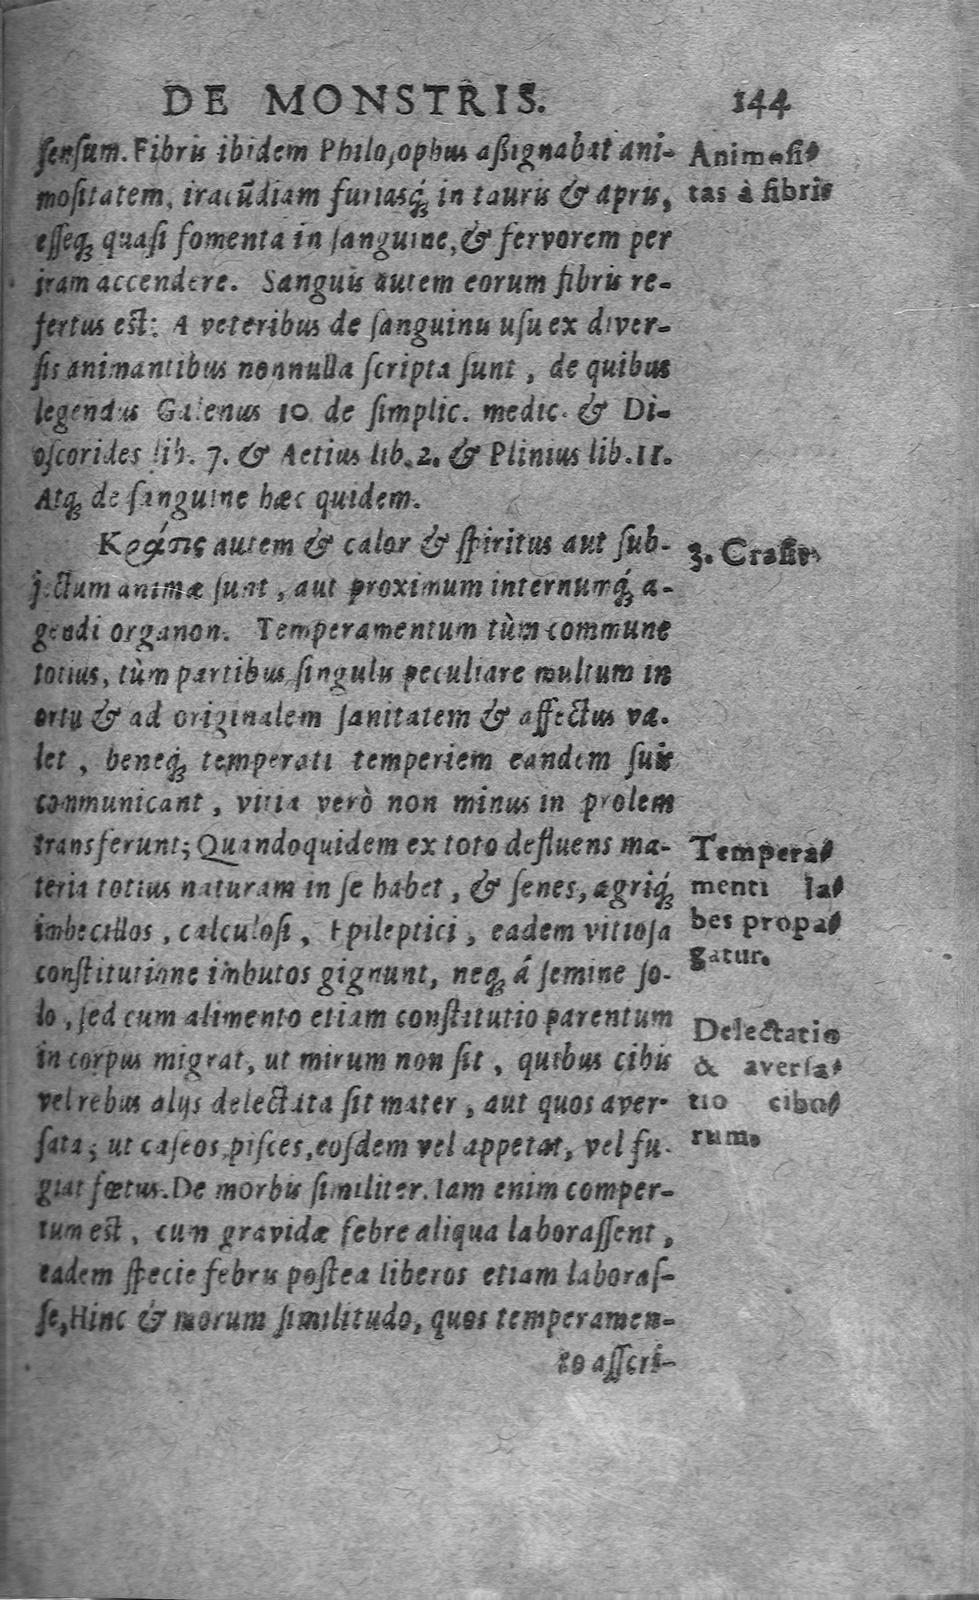 DE MONSTRIS. 144
ſenſum. Fibris ibidem Philoſophus aßignabat ani-
moſitatem, iracūdiam furiasq́; in tauris & apris,
eſſeq; quaſi fomenta in ſanguine, & fervorem per
iram accendere. Sanguis autem eorum fibris re-
fertus est: A veteribus de ſanguinis uſu ex diver-
ſis animantibus nonnulla ſcripta ſunt, de quibus
legendus Galenus 10 de ſimplic. medic. & Di-
oſcorides lib. 7. & Aetius lib. 2. & Plinius lib. 11.
Atq; de ſanguine hæc quidem.
Κρᾶσις autem & calor & ſpiritus aut ſub-
jectum animæ ſunt, aut proximum internumq́; a-
gendi organon. Temperamentum tùm commune
totius, tùm partibus ſingulis peculiare multum in
ortu & ad originalem ſanitatem & affectus va-
let, beneq́; temperati temperiem eandem ſuis
communicant, vitia verò non minus in prolem
transferunt; Quandoquidem ex toto defluens ma-
teria totius naturam in ſe habet, & ſenes, ægriq́;
imbecillos, calculoſi, Epileptici, eadem vitioſa
conſtitutione imbutos gignunt, neq; á ſemine ſo-
lo, ſed cum alimento etiam conſtitutio parentum
in corpus migrat, ut mirum non ſit, quibus cibis
vel rebus alijs delectata ſit mater, aut quos aver-
ſata; ut caſeos, piſces, eoſdem vel appetat, vel fu-
giat fœtus. De morbis ſimiliter. Iam enim comper-
tum est, cum gravidæ febre aliqua laboraſſent,
eadem ſpecie febris poſtea liberos etiam laboraſ-
ſe, Hinc & morum ſimilitudo, quos temperamen-
to aſſcri-
Animoſi-
tas à fibris
3. Craſis
Tempera-
menti la-
bes propa-
gatur.
Delectatio
& averſa-
tio cibo-
rum.